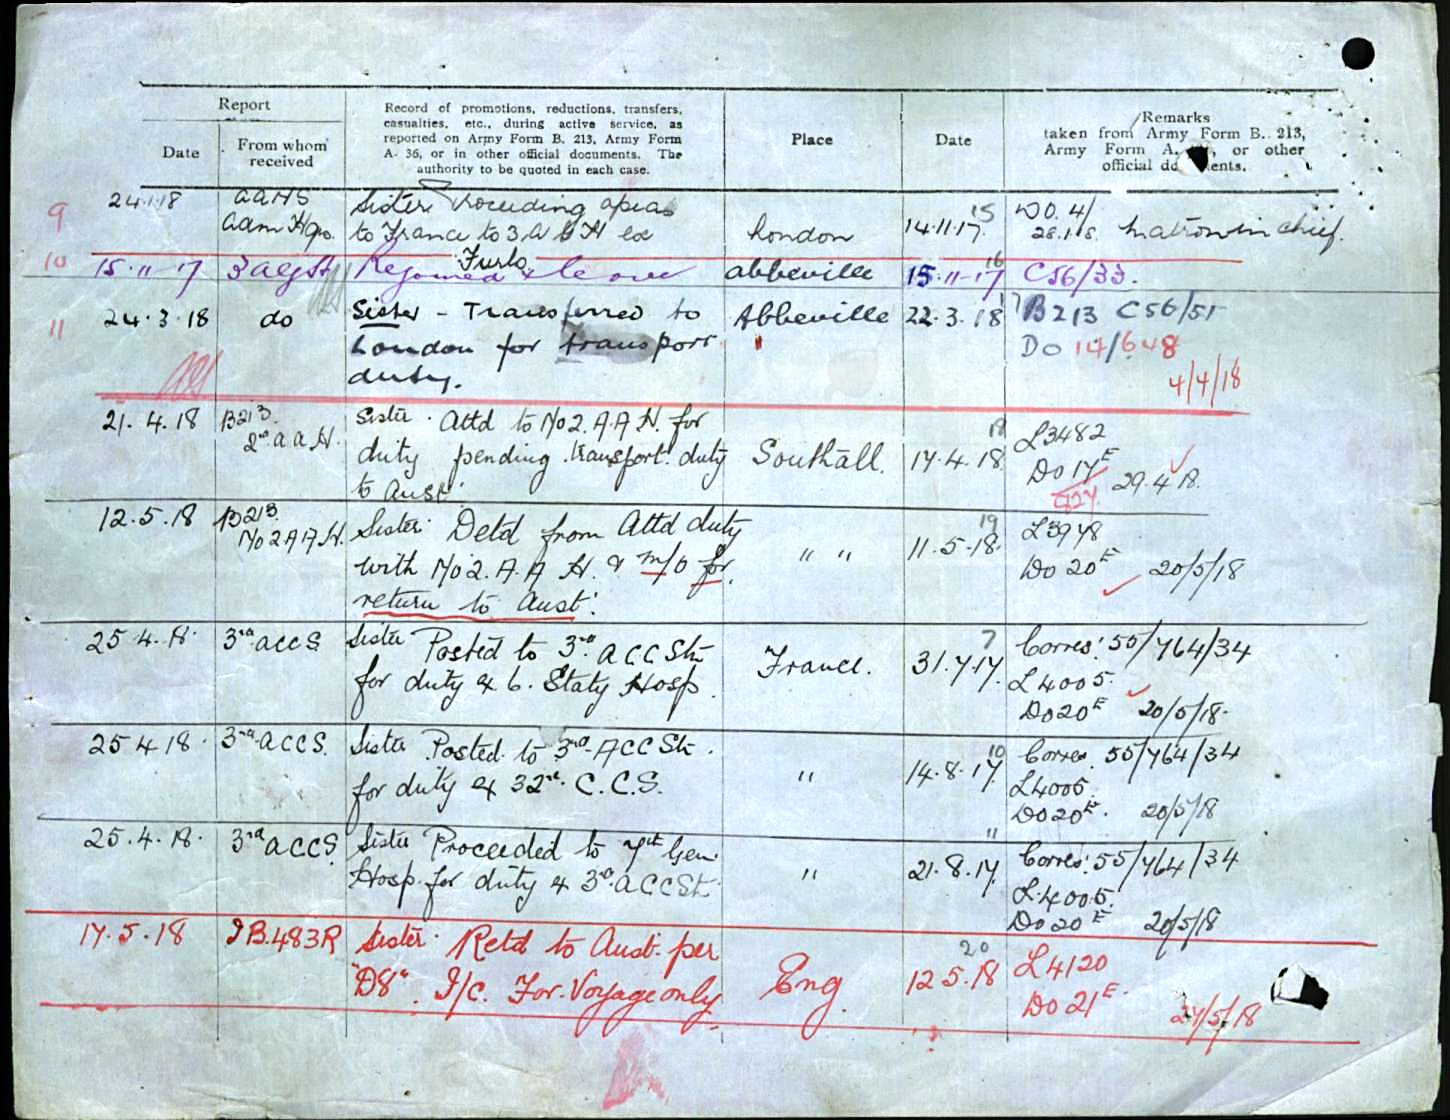 Report
Date
From whom received
Record of promotions, reductions, transfers,
casualties, etc., during active service, as
reported on Army Form B. 213, Army Form
A. 36, or in other official documents. The
authority to be quoted in each case.
Place
Date
Remarks
taken from Army Form B. 213,
Army Form A. , or other
official documents.
9
24.1.18
AANS
Sister Proceeding
to France to 3 A G H ex
London
14.11.17.
15
DO. 4/
28.1.18.
Matron in Chief.
10
15.11.17
3 AGH
Rejoined ex Leave
Furlo
Abbeville
15.11.17
16
C56/33.
11
24.3.18
do
Sister - Transferred to
London for transport
duty.
Abbeville
22.3.18
17
B213 C56/51
DO 14/648
4/4/18
21.4.18
B213.
2nd A A H.
Sister. Attd to No 2. A.A.H. for
duty pending transport duty
to Aust.
Southall.
17.4.18
18
L3482
DO 17E
29.4.18.
12.5.18
B213.
No 2 A A H.
Sister. Detd from Attd duty
with No 2. A.A H. & m/o for
return to Aust.
" "
11.5.18.
19
L3948
DO 20E 20/5/18
25.4.18.
3rd ACCS
Sister Posted to 3rd ACCStn
for duty ex 6. Staty Hosp.
France.
31.7.17.
7
Corres. 55/764/34
L4005.
DO20E 20/5/18.
25 4 18.
3rd ACCS.
Sister Posted to 3rd ACCStn.
for duty ex 32nd C.C.S.
"
14.8.17
10
Corres. 55/764/34
L4005.
DO20E. 20/5/18
25.4.18.
3rd ACCS
Sister Proceeded to 7th Gen.
Hosp. for duty ex 3rd ACCStn
"
21.8.17.
11
Corres. 55/764/34
L.4005.
DO 20E 20/5/18
17.5.18
IB.483R
Sister. Retd to Aust. per
"D8". I/C. For Voyage only.
Eng.
12.5.18
20
L4120
DO 21E.
24/5/18